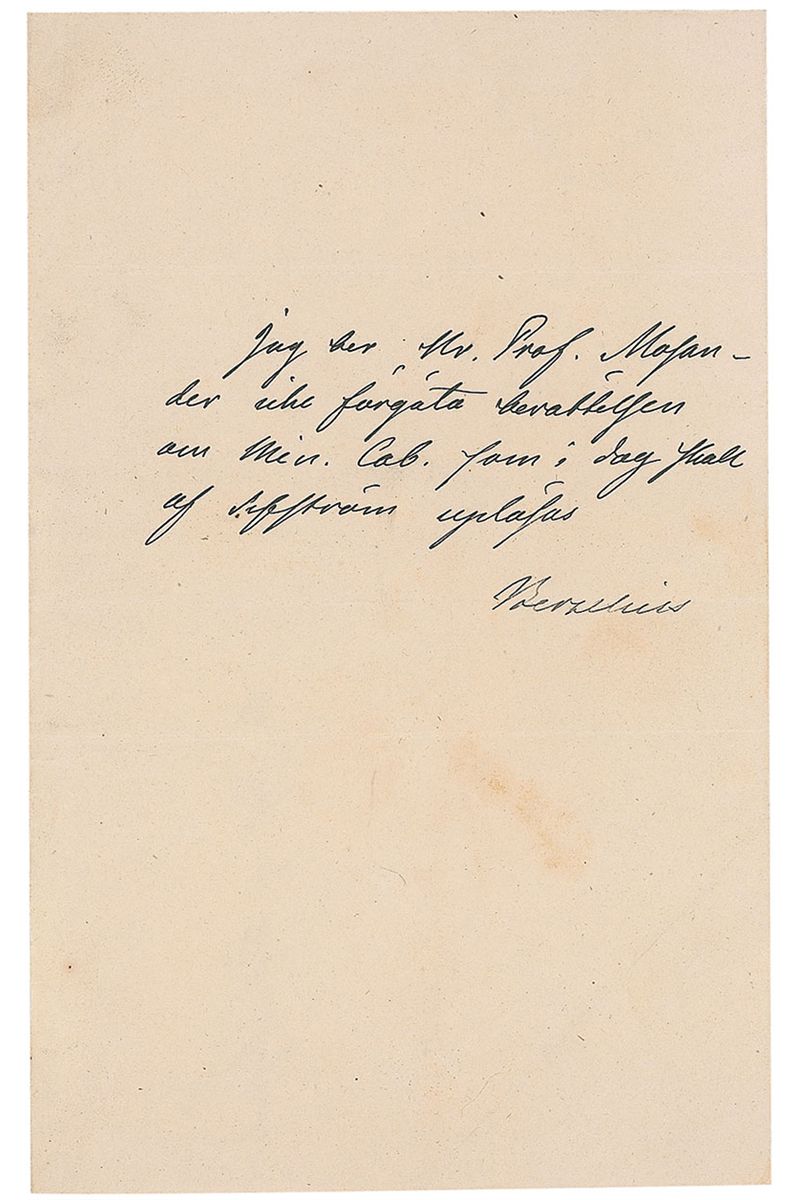 Jag ber Hr. Prof. Mosan-
der icke förgäta berättelsen
om Min. Cab. som i dag skall
af Sefström upläsas
Berzelius